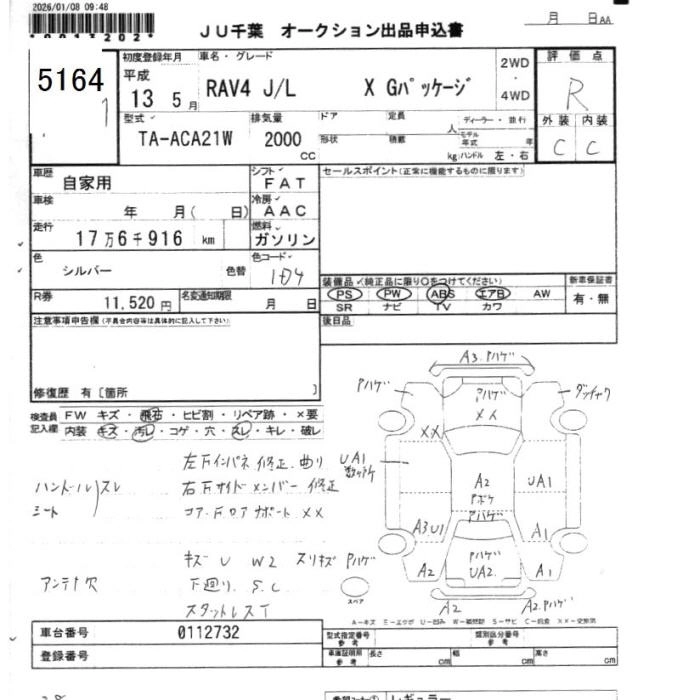 2026/01/08 09:48
JU千葉 オークション出品申込書
月 日AA
5164
初度登録年月
平成
13 5月
車名・グレード
RAV4 J/L X Gパッケージ
2WD
・
4WD
評価点
R
型式
TA-ACA21W
排気量
2000
cc
ドア 定員 人
形状 積載 kg
ディーラー・並行
モデル年式 年
ハンドル 左・右
外装 内装
C C
車歴
自家用
シフト
FAT
セールスポイント(正常に機能するものに限ります)
車検
年 月( 日)
冷房
AAC
走行
17万6千916 km
燃料
ガソリン
色
シルバー
色替
色コード
1D4
装備品(純正品に限り○をつけてください)
新車保証書
PS PW ABS エアB AW
SR ナビ TV カワ
有・無
R券
11,520円
名変通知期限
月 日
後日品
注意事項申告欄(不具合内容等は具体的に記入して下さい)
修復歴 有[箇所 ]
検査員記入欄
FW キズ・飛石・ヒビ割・リペア跡・×要
内装 キズ・汚レ・コゲ・穴・スレ・キレ・破レ
左フインパネ修正.曲り
ハンドルスレ
右フサイドメンバー修正
シート
コアF.ロアサポートXX
キズ U W2 スリキズ Pハゲ
アンテナ穴
下廻り.S.C
スタットレスT
A3.Pハゲ
Pハゲ
Pハゲ
XX
XX
UA1
A2
Pボケ
UA1
Pハゲ
A3.U1
A1
Pハゲ
UA2.
A2
A1
A2
A2.Pハゲ
スペア
A-キズ E-エクボ U-凹み W-補修跡 S-サビ C-腐食 XX-交換済
車台番号
0112732
登録番号
型式指定番号
参考
類別区分番号
参考
車庫証明用
参考
長さ cm
幅 cm
高さ cm
レギュラー